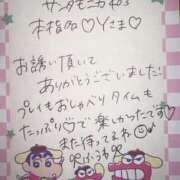 サンタモニカ403
本指名♡Yさま♡
お誘い頂いて
ありがとうございました!
プレイもおしゃべりタイムも
たっぷり♡で楽しかったです♡
また待ってるね
ふうゆ